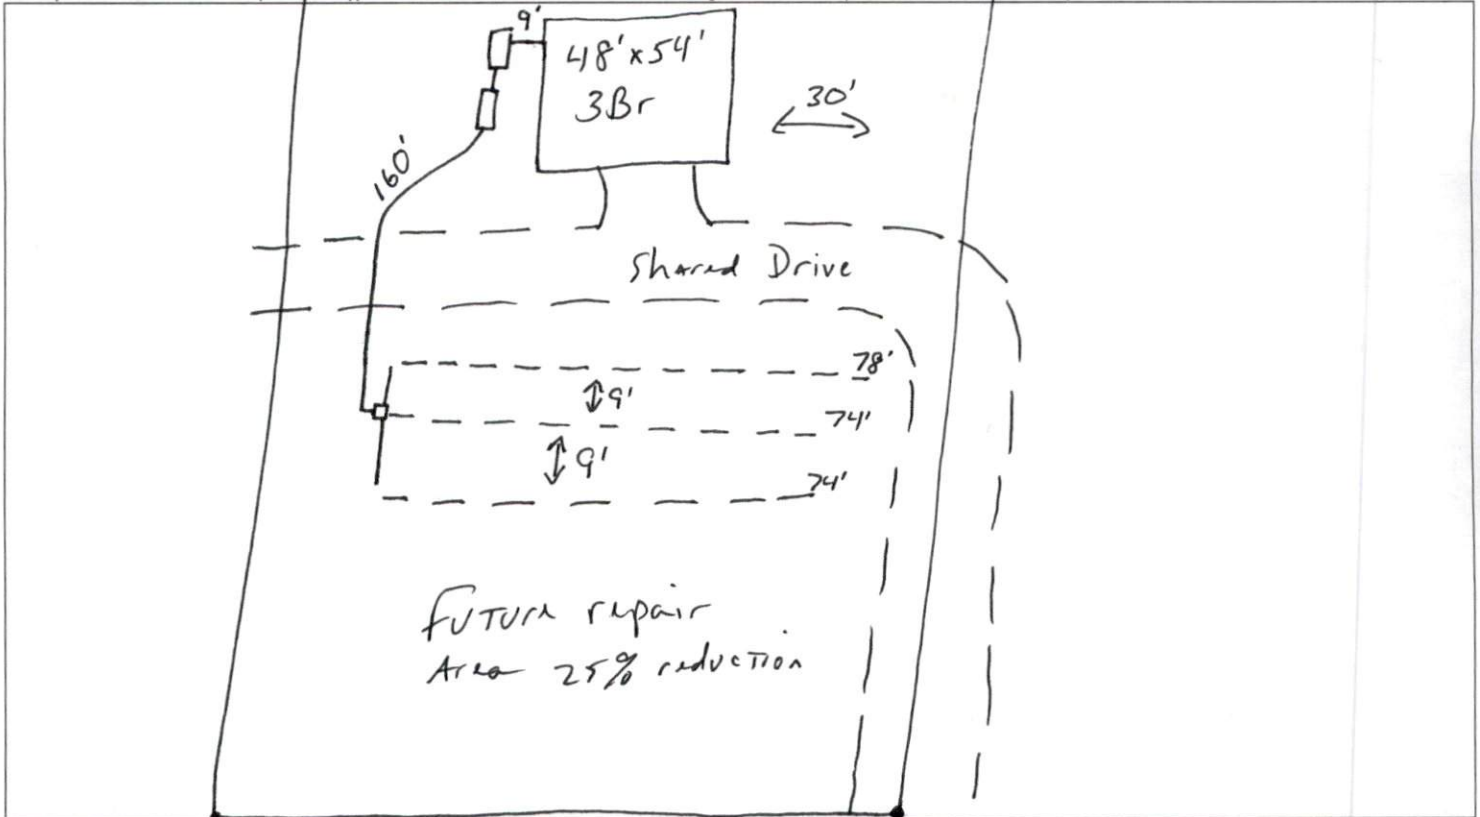 9'
48'x54'
3Br
30'
160'
Shared Drive
78'
9'
74'
9'
74'
Future repair
Area 25% reduction